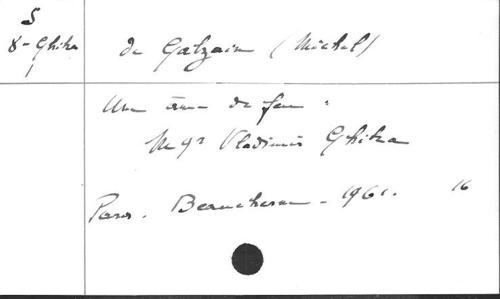 S
8-Ghika
1
de Galzain (Michel)
Une âme de feu :
Mgr Vladimir Ghika
Paris. Beauchesne - 1961. 16